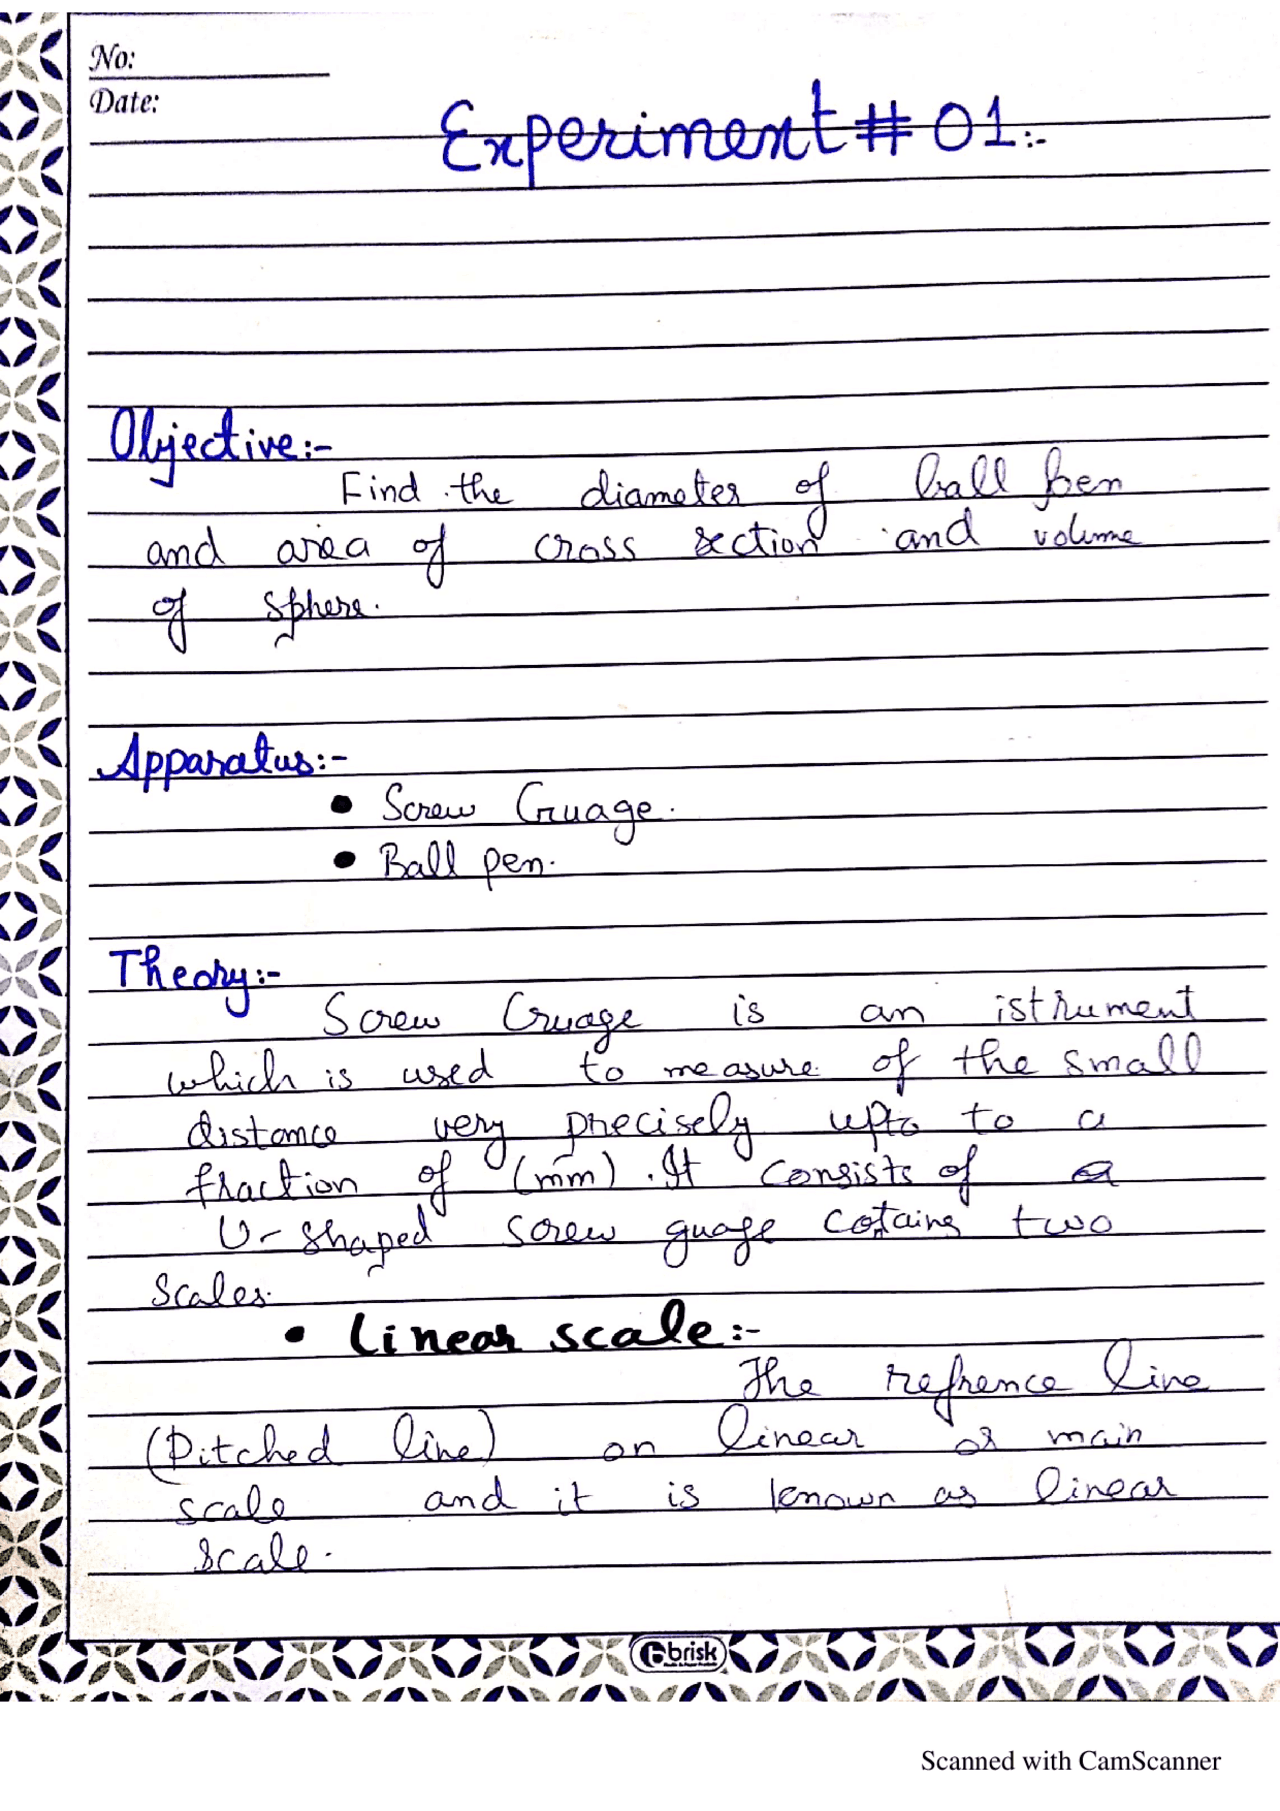 No:
Date:
Experiment # 01:-
Objective:-
Find the diameter of ball pen
and area of cross section and volume
of sphere.
Apparatus:-
• Screw Gruage.
• Ball pen.
Theory:-
Screw Gruage is an istrument
which is used to measure of the small
distance very precisely upto to a
fraction of (mm). It consists of a
U-shaped screw guage cotains two
scales.
• Linear scale:-
The refrence line
(Pitched line) on linear or main
scale and it is known as linear
scale.
brisk
Scanned with CamScanner